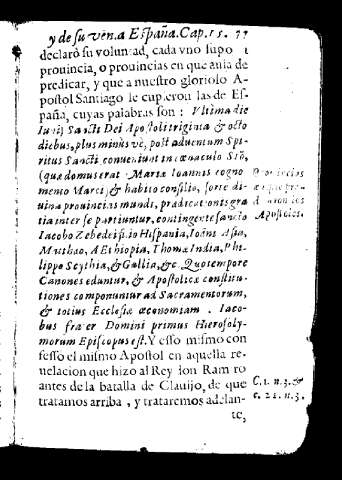 y de su ven. a España. Cap. 15. 77
declarò su voluntad, cada vno supo
prouincia, o prouincias en que auia de
predicar, y que a nuestro glorioso A-
postol Santiago le cupieron las de Es-
paña, cuyas palabras son: Vltima die
Iunij Sancti Dei Apostoli triginta & octo
diebus, plus minus vè, post aduentum Spi-
ritus Sancti conueniunt in cœnaculo Sion,
(quæ domus erat Mariæ Ioannis cogno
mento Marci) & habito consilio, sorte di-
uina prouincias mundi, prædicationis gra
tia inter se partiuntur, contingente sancto
Iacobo Zebedei filio Hispania, Ioāni Asia,
Matthæo, AEthiopia, Thomæ India, Phi-
lippo Scythia, & Gallia, &c. Quo tempore
Canones eduntur, & Apostolicæ constitu-
tiones componuntur ad Sacramentorum,
& totius Ecclesiæ œconomiam. Iaco-
bus frater Domini primus Hierosoly-
morum Episcopus est. Y esso mismo con
fesso el mismo Apostol en aquella re-
uelacion que hizo al Rey don Ramiro
antes de la batalla de Clauijo, de que
tratamos arriba, y trataremos adelan-
te,
Prouincias
Apostoles.
C. 1. n. 3. &
c. 21. n. 3.